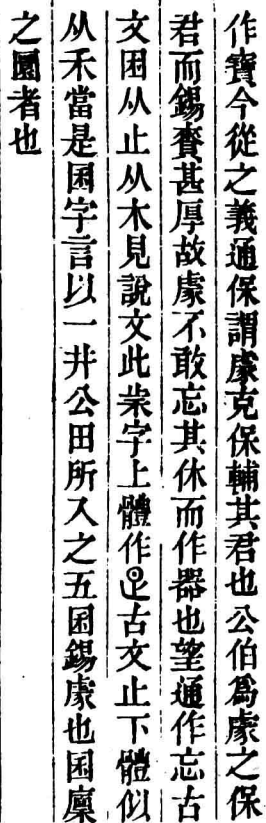 作寶今從之義通保謂䖍克保輔其君也公伯爲䖍之保
君而錫賚甚厚故䖍不敢忘其休而作器也望通作忘古
文困从止从木見說文此𣏔字上體作古文止下體似
从禾當是囷字言以一井公田所入之五囷錫䖍也囷廩
之圜者也